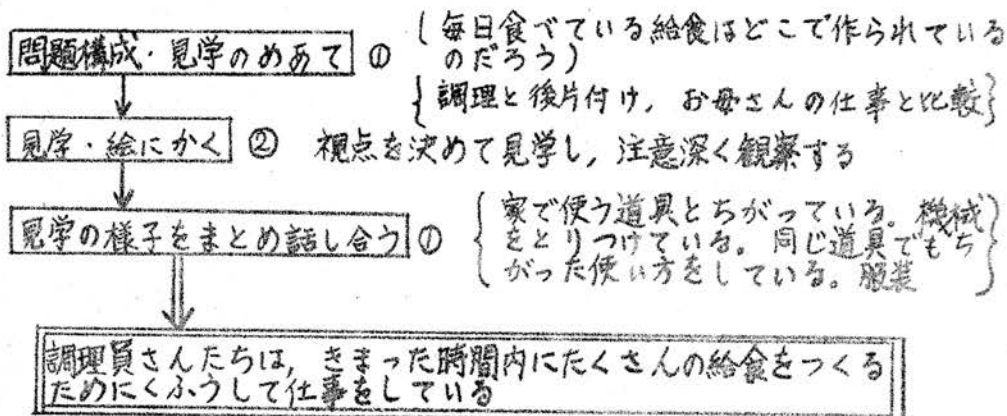 問題構成・見学のめあて ① (毎日食べている給食はどこで作られている
のだろう)
{調理と後片付け, お母さんの仕事と比較}
見学・絵にかく ② 視点を決めて見学し, 注意深く観察する
見学の様子をまとめ話し合う ① {家で使う道具とちがっている。機械
をとりつけている。同じ道具でもち
がった使い方をしている。服装}
調理員さんたちは, きまった時間内にたくさんの給食をつくる
ためにくふうして仕事をしている